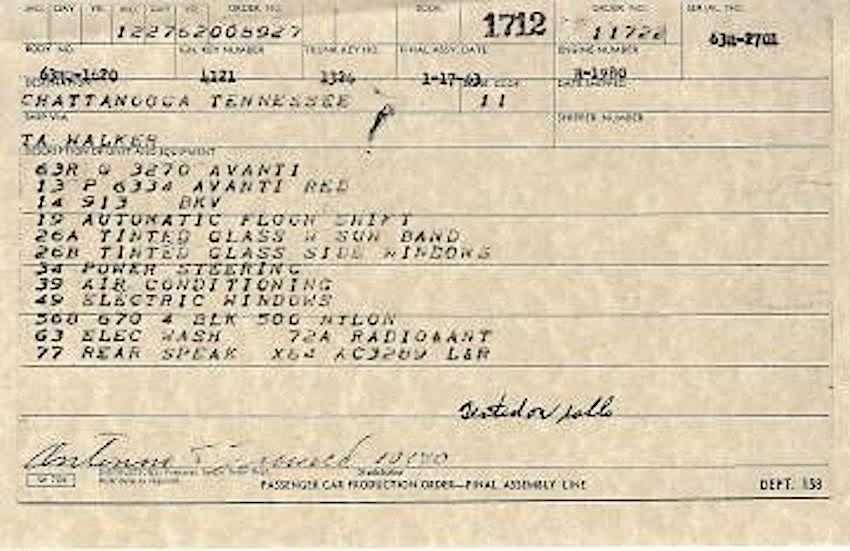 MO. DAY YR. MO. DAY YR. ORDER NO. BODY 1712 ORDER NO. SERIAL NO.
122762008927 11722 63R-2701
BODY NO. IGN. KEY NUMBER TRUNK KEY NO. FINAL ASSY. DATE ENGINE NUMBER
4121 1326 1-17-63 R-1980
DESTINATION
CHATTANOOGA TENNESSEE 11
SHIP VIA SHIPPER NUMBER
TA WALKER
DESCRIPTION OF UNIT AND EQUIPMENT
63R Q 3270 AVANTI
13 P 6334 AVANTI RED
14 913 BKV
19 AUTOMATIC FLOOR SHIFT
26A TINTED GLASS W SUN BAND
26B TINTED GLASS SIDE WINDOWS
34 POWER STEERING
39 AIR CONDITIONING
49 ELECTRIC WINDOWS
560 670 4 BLK 500 NYLON
63 ELEC WASH 72A RADIO&ANT
77 REAR SPEAK X64 AC3289 L&R
Tested on rolls
Antenna
PASSENGER CAR PRODUCTION ORDER—FINAL ASSEMBLY LINE DEPT. 153